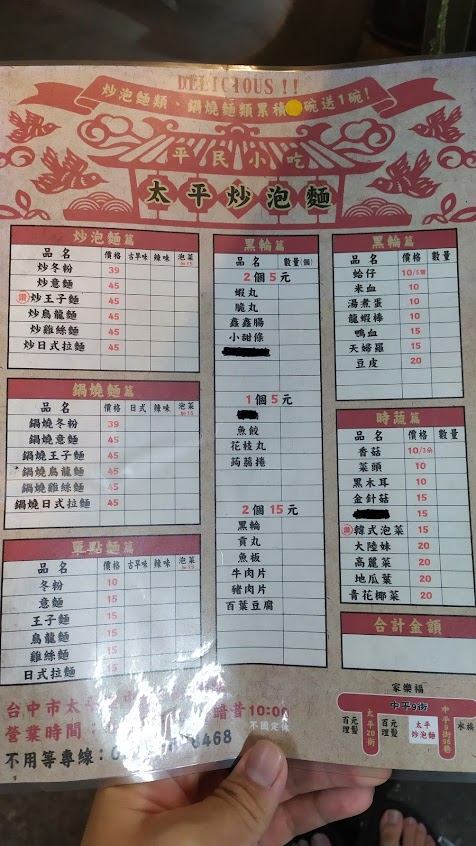 DELICIOUS!!
炒泡麵類、鍋燒麵類累積 碗送1碗!
平民小吃
太平炒泡麵
炒泡麵篇
品名 價格 古早味 辣味 泡菜
炒冬粉 39
炒意麵 45
炒王子麵 45
炒烏龍麵 45
炒雞絲麵 45
炒日式拉麵 45
鍋燒麵篇
品名 價格 日式 辣味 泡菜
鍋燒冬粉 39
鍋燒意麵 45
鍋燒王子麵 45
鍋燒烏龍麵 45
鍋燒雞絲麵 45
鍋燒日式拉麵 45
單點麵篇
品名 價格 古早味 辣味 泡菜
冬粉 10
意麵 15
王子麵 15
烏龍麵 15
雞絲麵 15
日式拉麵 15
黑輪篇
品名 數量(個)
2個5元
蝦丸
脆丸
鑫鑫腸
小甜條
1個5元
魚餃
花枝丸
蒟蒻捲
2個15元
黑輪
貢丸
魚板
牛肉片
豬肉片
百葉豆腐
黑輪篇
品名 價格 數量
蛤仔 10/5個
米血 10
湯煮蛋 10
龍蝦棒 10
鴨血 15
天婦羅 15
豆皮 20
時蔬篇
品名 價格 數量
香菇 10/3朵
菜頭 10
黑木耳 10
金針菇 15
15
韓式泡菜 15
大陸妹 20
高麗菜 20
地瓜葉 20
青花椰菜 20
合計金額
台中市太
營業時間: 10:00
不固定休
不用等專線:0 8468
家樂福
中平9街
百元理髮
太平20街
百元理髮
太平炒泡麵
水族